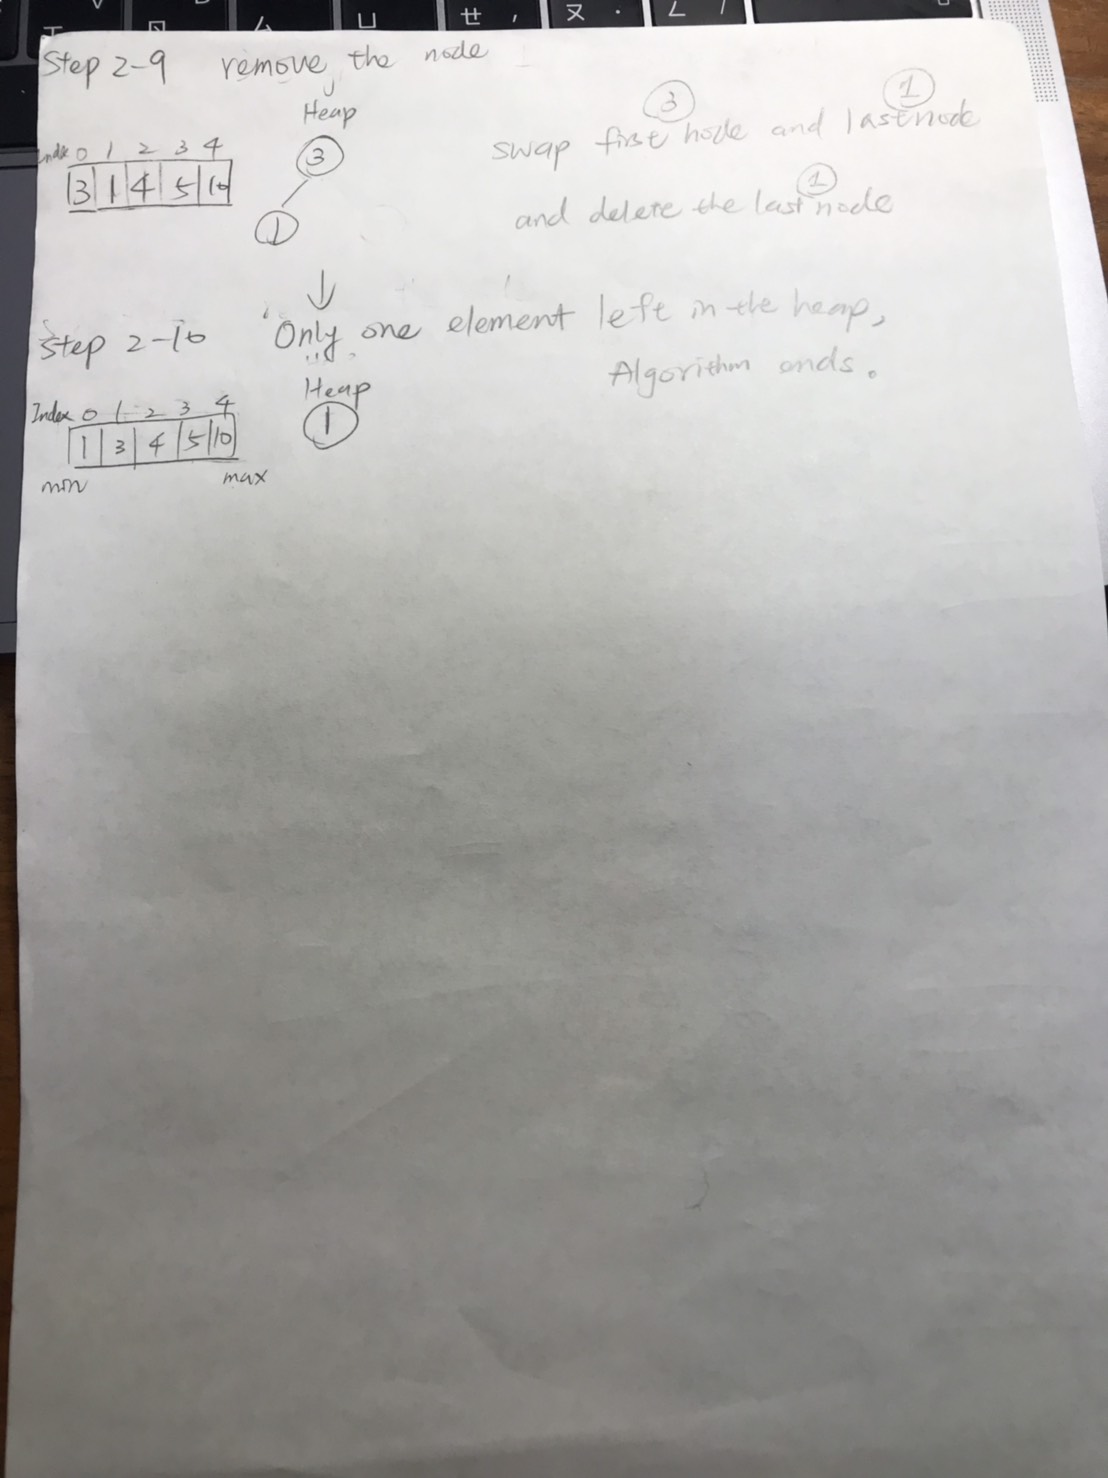 Step 2-9 remove the node
Heap
Index 0 1 2 3 4
3 1 4 5 10
3
1
3 1
swap first node and last node
1
and delete the last node
↓
Step 2-10 Only one element left in the heap,
Algorithm ends.
Heap
Index 0 1 2 3 4
1 3 4 5 10
1
min max